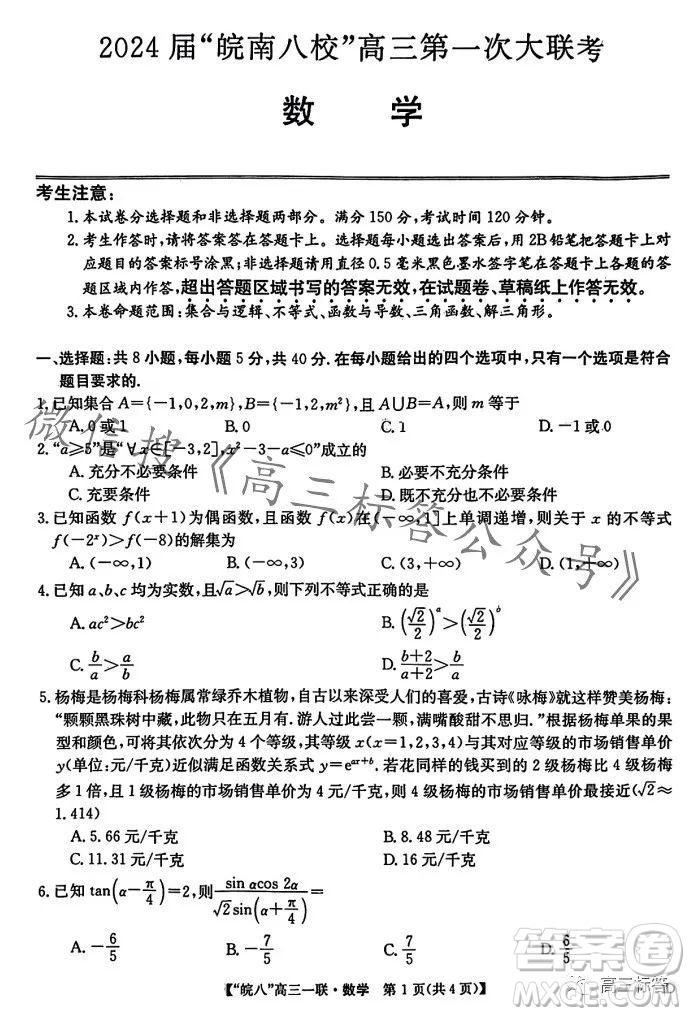 2024 届“皖南八校”高三第一次大联考
数 学
考生注意:
1. 本试卷分选择题和非选择题两部分。满分 150 分,考试时间 120 分钟。
2. 考生作答时,请将答案答在答题卡上。选择题每小题选出答案后,用 2B 铅笔把答题卡上对
应题目的答案标号涂黑;非选择题请用直径 0.5 毫米黑色墨水签字笔在答题卡上各题的答
题区域内作答,超出答题区域书写的答案无效,在试题卷、草稿纸上作答无效。
3. 本卷命题范围:集合与逻辑、不等式、函数与导数、三角函数、解三角形。
一、选择题:共 8 小题,每小题 5 分,共 40 分. 在每小题给出的四个选项中,只有一个选项是符合
题目要求的.
1. 已知集合 A={-1,0,2,m},B={-1,2,m²},且 A∪B=A,则 m 等于
A. 0 或 1 B. 0 C. 1 D. -1 或 0
2. “a⩾5”是“∀x∈[-3,2],x²-3-a⩽0”成立的
A. 充分不必要条件 B. 必要不充分条件
C. 充要条件 D. 既不充分也不必要条件
3. 已知函数 f(x+1)为偶函数,且函数 f(x)在(-∞,1]上单调递增,则关于 x 的不等式
f(-2ˣ)>f(-8)的解集为
A. (-∞,1) B. (-∞,3) C. (3,+∞) D. (1,+∞)
4. 已知 a、b、c 均为实数,且√a>√b,则下列不等式正确的是
A. ac²>bc² B. (√2/2)^a>(√2/2)^b
C. b/a>a/b D. (b+2)/(a+2)>b/a
5. 杨梅是杨梅科杨梅属常绿乔木植物,自古以来深受人们的喜爱,古诗《咏梅》就这样赞美杨梅:
“颗颗黑珠树中藏,此物只在五月有. 游人过此尝一颗,满嘴酸甜不思归.”根据杨梅单果的果
型和颜色,可将其依次分为 4 个等级,其等级 x(x=1,2,3,4)与其对应等级的市场销售单价
y(单位:元/千克)近似满足函数关系式 y=e^(ax+b). 若花同样的钱买到的 2 级杨梅比 4 级杨梅
多 1 倍,且 4 级杨梅的市场销售单价为 4 元/千克,则 1 级杨梅的市场销售单价约为(√2≈
1.414)
A. 5.66 元/千克 B. 8.48 元/千克
C. 11.31 元/千克 D. 16 元/千克
6. 已知 tan(α-π/4)=2,则 sin αcos 2α/(√2sin(α+π/4))=
A. -6/5 B. -7/5 C. 7/5 D. 6/5
【“皖八”高三一联·数学 第 1 页(共 4 页)】
微信搜《高三标答公众号》
答案圈
高三标答